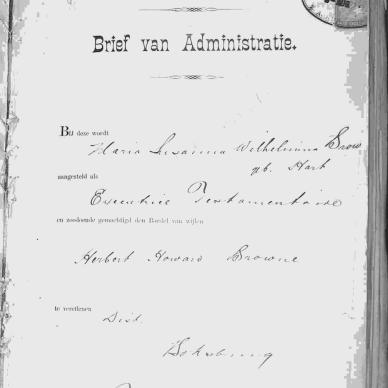 Brief van Administratie.
Bij deze wordt
Maria Susanna Wilhelmina Brow
gb. Hart
aangesteld als
Executrice Testamentaire
en zoodoende gemachtigd den Boedel van wijlen
Herbert Howard Browne
te vereffenen
Dist.
Boksburg